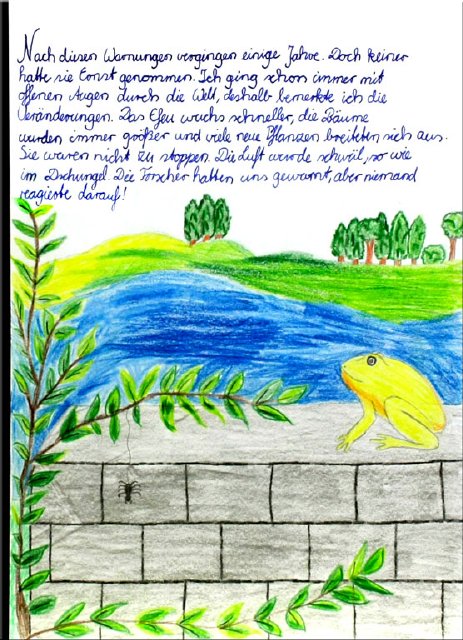 Nach diesen Warnungen vergingen einige Jahre. Doch keiner
hatte sie Ernst genommen. Ich ging schon immer mit
offenen Augen durch die Welt, deshalb bemerkte ich die
Veränderungen. Das Efeu wuchs schneller, die Bäume
wurden immer größer und viele neue Pflanzen breiteten sich aus.
Sie waren nicht zu stoppen. Die Luft wurde schwül, so wie
im Dschungel. Die Forscher hatten uns gewarnt, aber niemand
reagierte darauf!